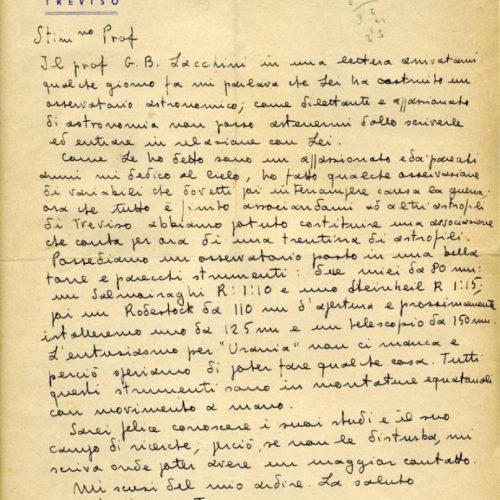 TREVISO
Stim.mo Prof
Il prof G. B. Lacchini in una lettera arrivatami
qualche giorno fa mi parlava che Lei ha costruito un
osservatorio astronomico; come dilettante e appassionato
di astronomia non posso astenermi dallo scriverle
ed entrare in relazione con Lei.
Come Le ho detto sono un appassionato e da parecchi
anni mi dedico al cielo, ho fatto qualche osservazione
di variabili che dovetti poi interrompere causa la guerra
ora che tutto è finito associandomi ad altri astrofili
di Treviso abbiamo potuto costituire una associazione
che conta per ora di una trentina di astrofili.
Possediamo un osservatorio posto in una bella
torre e parecchi strumenti: due miei da 80 mm:
un Salmoiraghi R: 1:10 e uno Steinheil R 1:15,
poi un Rodestock da 110 mm d'apertura e prossimamente
istalleremo uno da 125 mm e un telescopio da 150 mm.
L'entusiasmo per "Urania" non ci manca e
perciò speriamo di poter fare qualche cosa. Tutti
questi strumenti sono in montature equatoriali
con movimento a mano.
Sarei felice conoscere i suoi studi e il suo
campo di ricerche, perciò, se non le disturba, mi
scriva onde poter avere un maggior contatto.
Mi scusi del mio ardire. La saluto